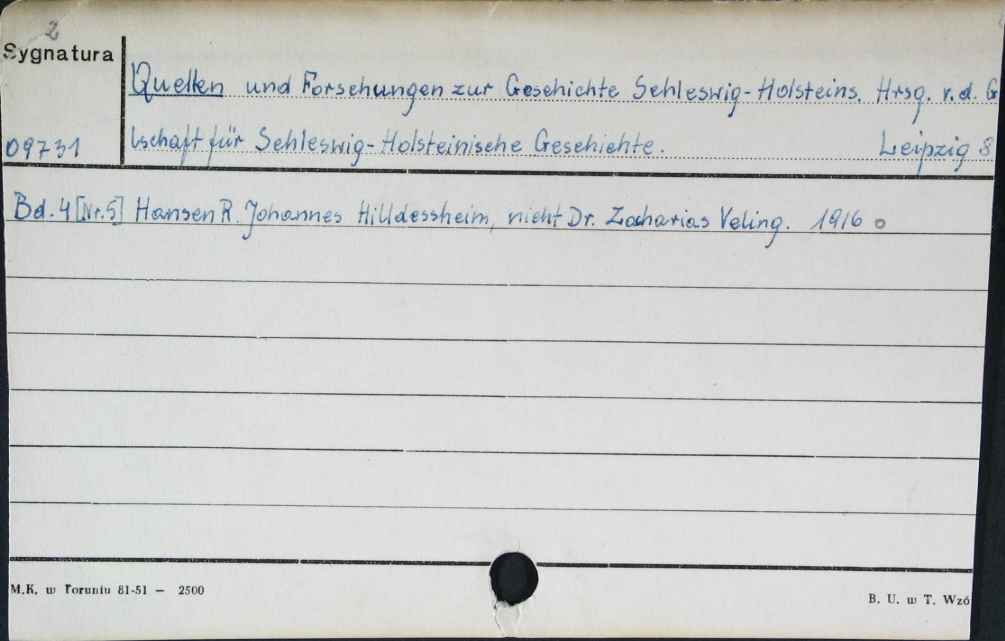 2
Sygnatura
Quellen und Forschungen zur Geschichte Schleswig-Holsteins. Hrsg. v.d. G
09731
lschaft für Schleswig-Holsteinische Geschichte. Leipzig 8
Bd. 4 [Nr.5] Hansen R. Johannes Hilldessheim, nicht Dr. Zacharias Veling. 1916
M.K. w Toruniu 81-51 — 2500
B. U. w T. Wzó